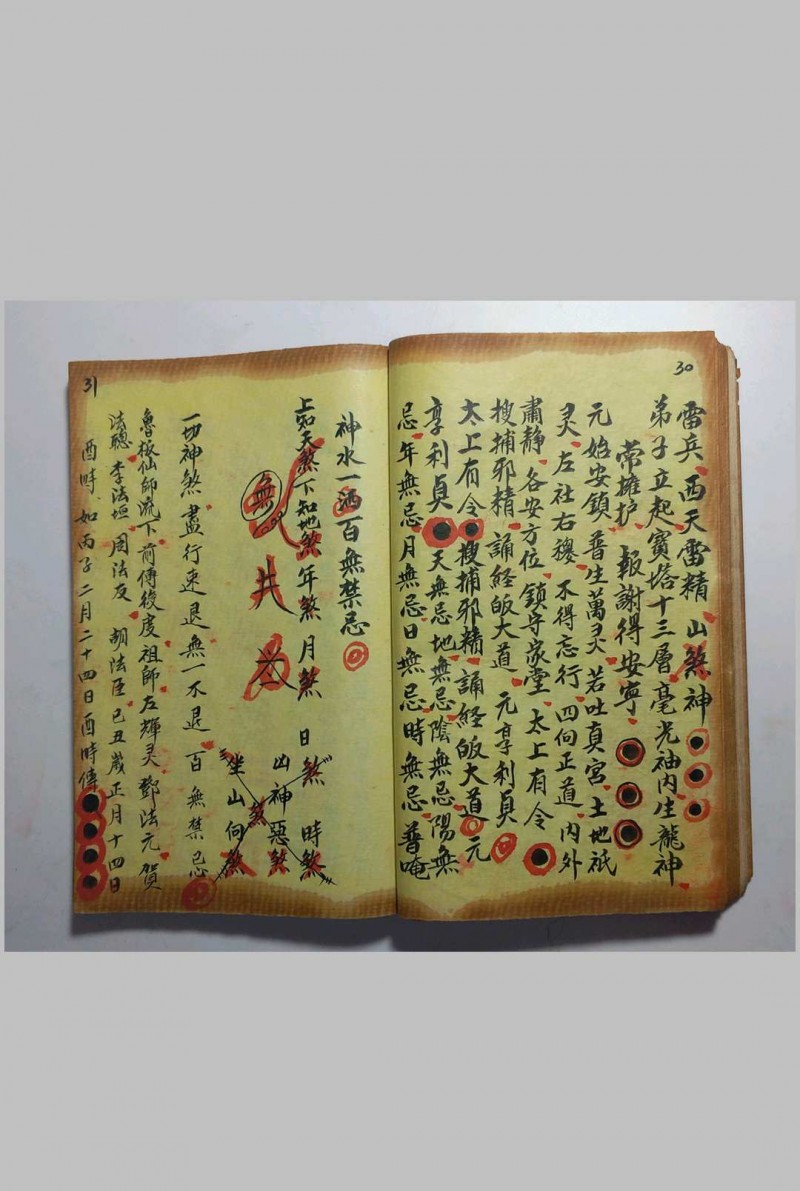 30
雷兵西天雷精山煞神
弟子立起寳塔十三層毫光袖内生龍神
常擁护報謝得安寧
元始安鎮普生萬灵若吐真宮土地祇
灵左社右稷不得忘行四向正道内外
肅静各安方位鎮守家堂太上有令
搜捕邪精誦經皈大道元享利貞
太上有令搜捕邪精誦經皈大道元
享利貞天無忌地無忌陰無忌陽無
忌年無忌月無忌日無忌時無忌普唵
31
神水一洒百無禁忌
上知天煞下知地煞年煞月煞日煞時煞
山神惡煞
無
共
煞
坐山向煞
一切神煞盡行速退無一不退百無禁忌
魯板仙師流下前傳後度祖師左輝灵鄧法元賀
法聰李法垣周法友胡法臣己丑歲正月十四日
酉時如丙子二月二十四日酉時傳